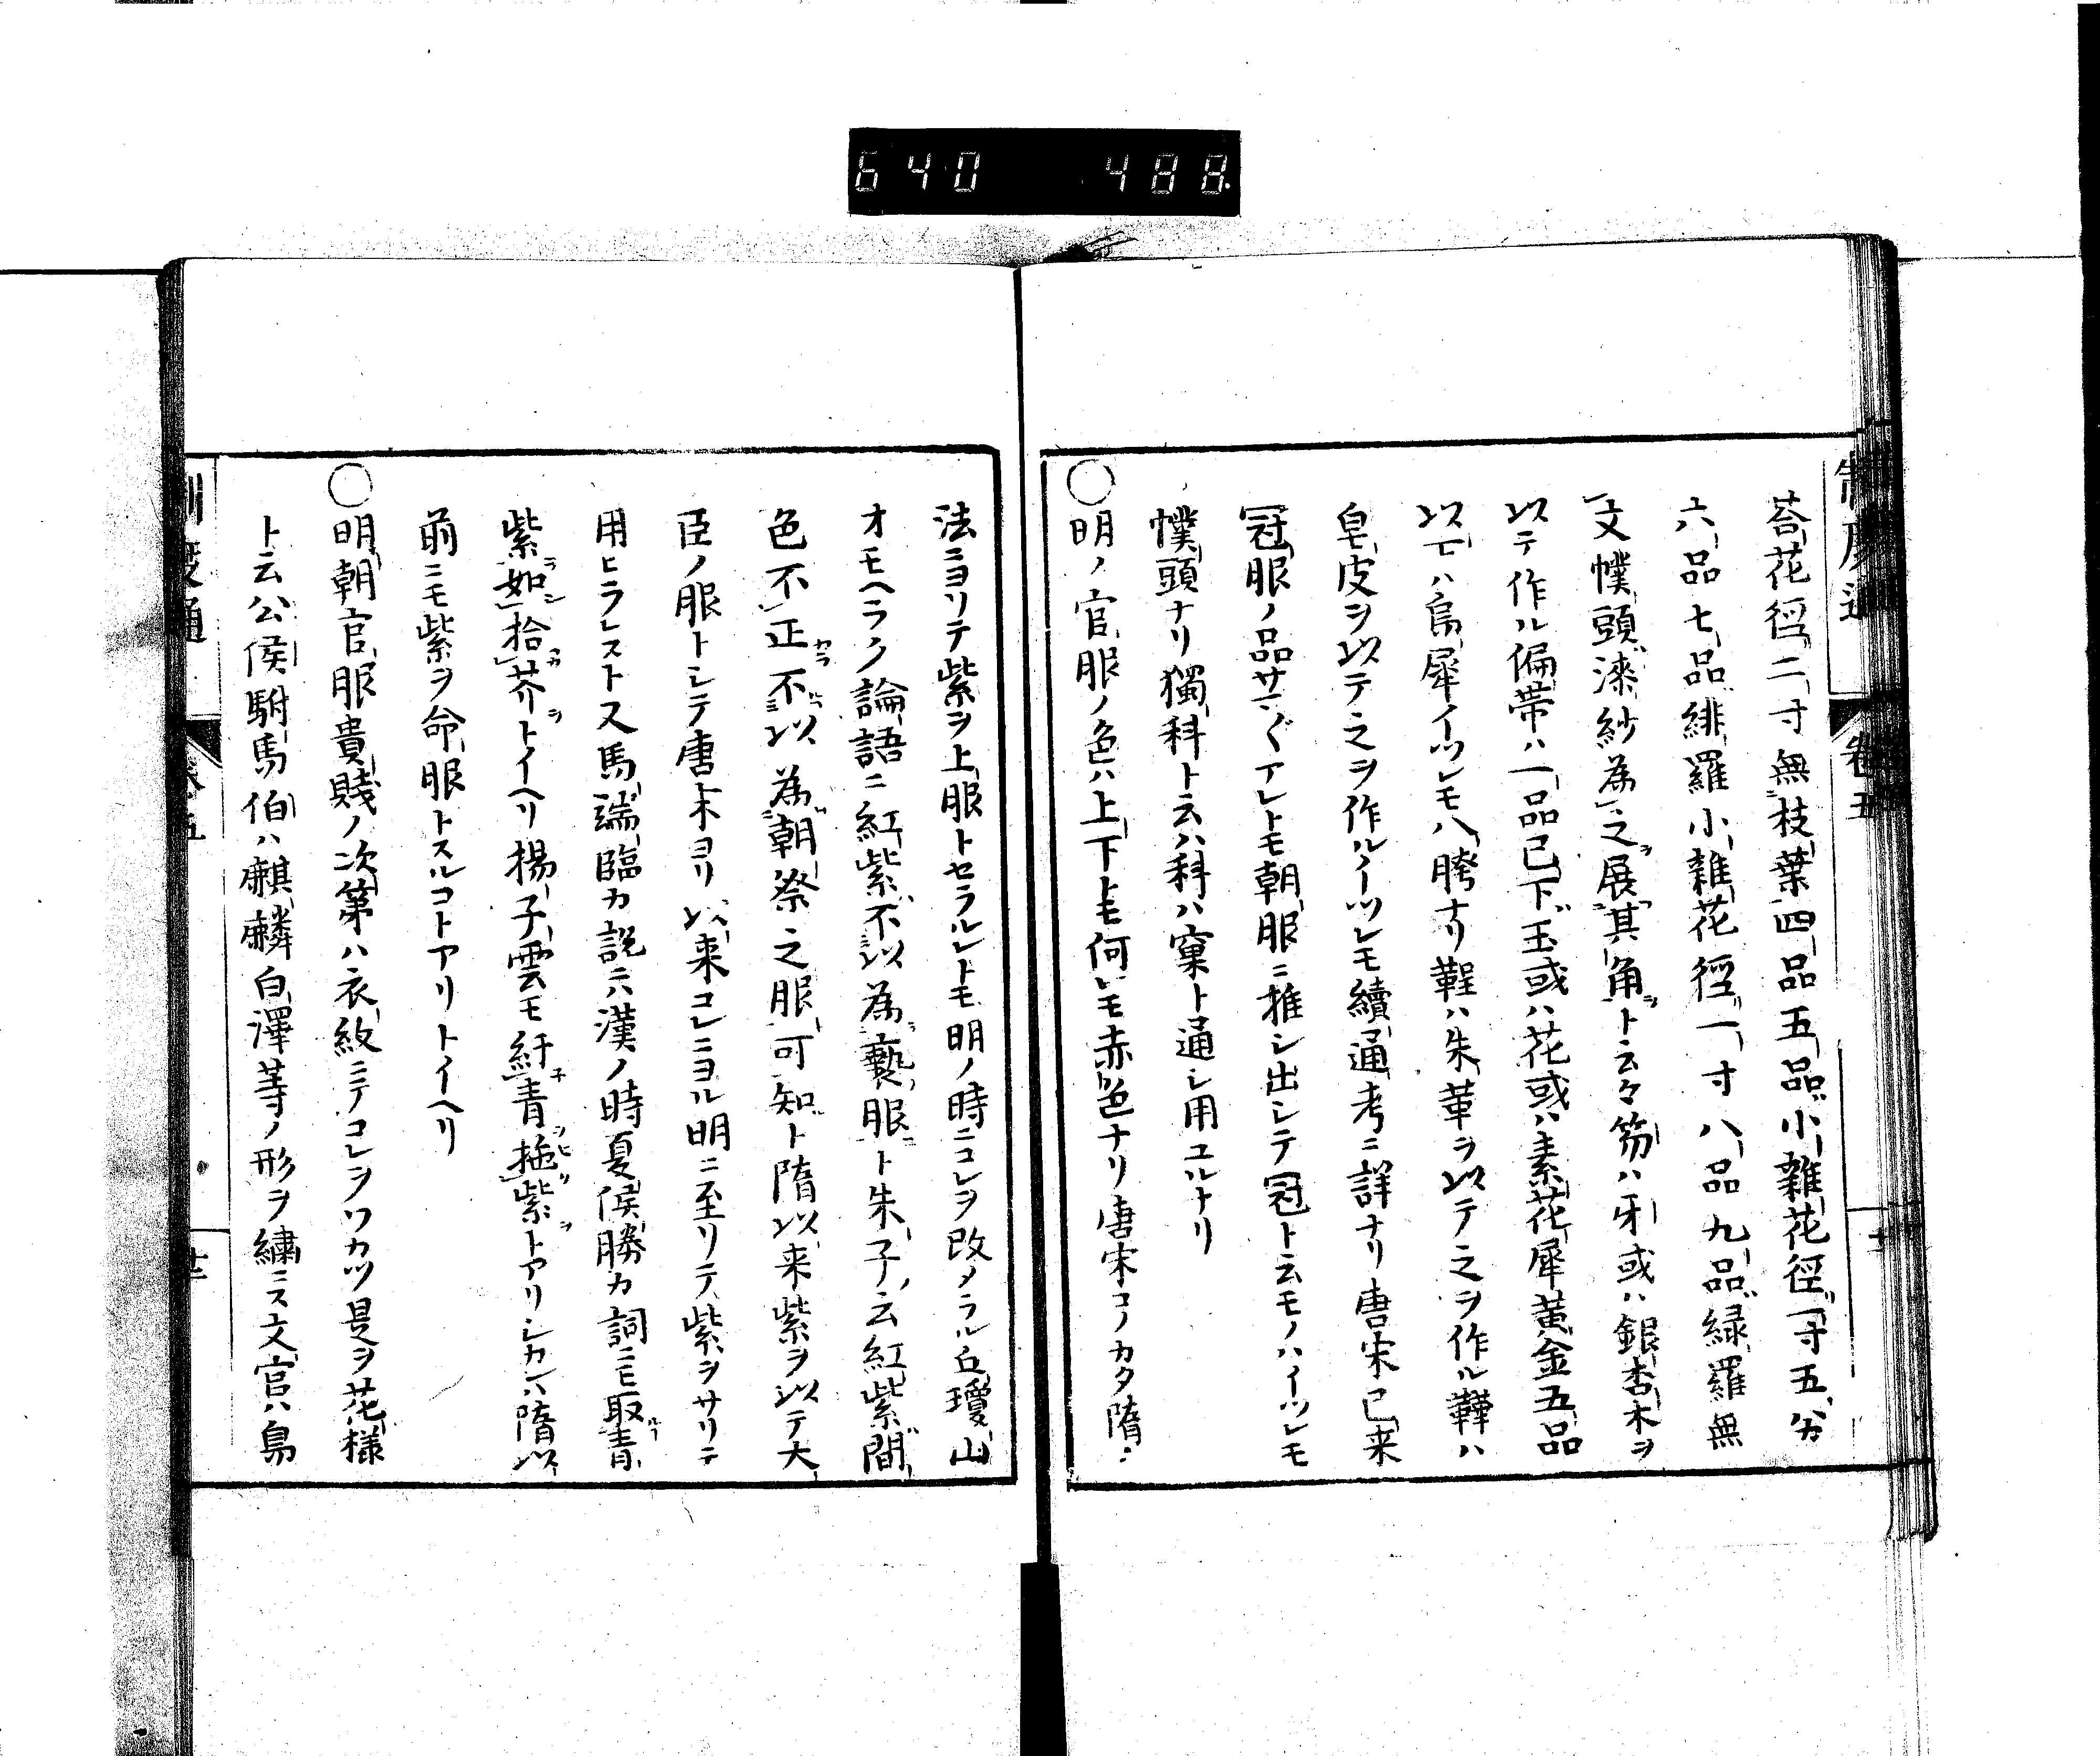 640 488
制度通 卷五
荅花徑二寸無枝葉四品五品小雜花徑一寸五分
六品七品緋羅小雜花徑一寸八品九品緑羅無
文幞頭漆紗為之展其角ト云々笏ハ牙或ハ銀杏木ヲ
以テ作ル偏帯ハ一品已下玉或ハ花或ハ素花犀黄金五品
以下ハ烏犀イツレモ八胯ナリ鞓ハ朱革ヲ以テ之ヲ作ル鞾ハ
皂皮ヲ以テ之ヲ作ルイツレモ續通考ニ詳ナリ唐宋已来
冠服ノ品サマ〲アレトモ朝服ニ推シ出シテ冠ト云モノハイツレモ
幞頭ナリ獨科ト云ハ科ハ窠ト通シ用ユルナリ
〇明ノ官服ノ色ハ上下トモ何レモ赤色ナリ唐宋コノカタ隋ノ
法ニヨリテ紫ヲ上服トセラルレトモ明ノ時ニコレヲ改メラル丘瓊山
オモヘラク論語ニ紅紫不以為褻服ト朱子ノ云紅紫間
色不正不以為朝祭之服可知ト隋以来紫ヲ以テ大
臣ノ服トシテ唐宋ヨリ以来コレニヨル明ニ至リテ紫ヲサリテ
用ヒラレストス馬端臨カ説ニハ漢ノ時夏侯勝カ詞ニモ取青
紫如拾芥トイヘリ揚子雲モ紆青拖紫トアリシカレハ隋以
前ニモ紫ヲ命服トスルコトアリトイヘリ
〇明朝官服貴賤ノ次第ハ衣紋ニテコレヲワカツ是ヲ花様
ト云公侯駙馬伯ハ麒麟白澤等ノ形ヲ繍ニス文官ハ鳥
制度通 卷五